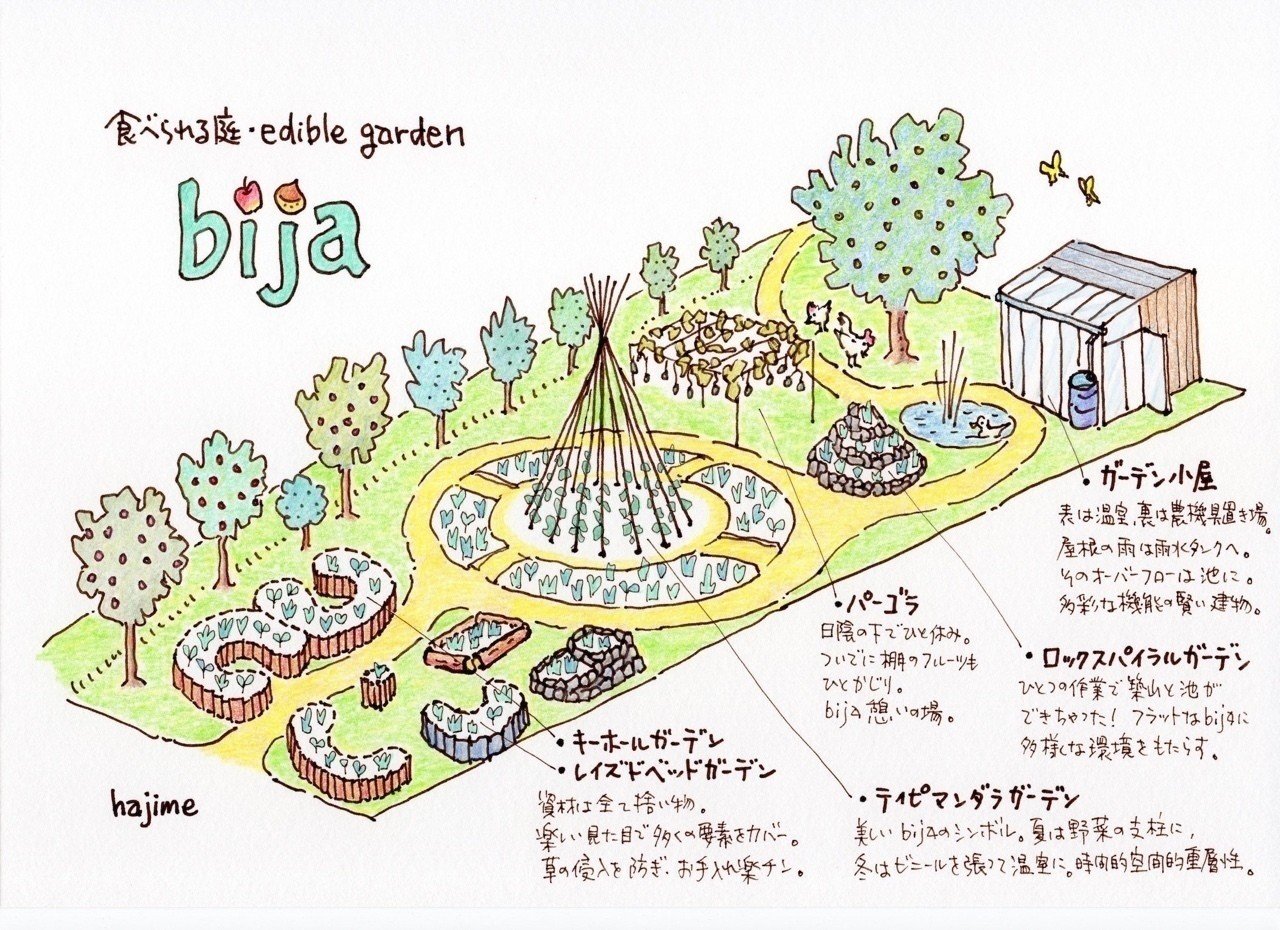 食べられる庭・edible garden
bija
・ガーデン小屋
表は温室、裏は農機具置き場。
屋根の雨は雨水タンクへ。
そのオーバーフローは池に。
多彩な機能の賢い建物。
・パーゴラ
日陰の下でひと休み。
ついでに棚のフルーツも
ひとかじり。
bija憩いの場。
・ロックスパイラルガーデン
ひとつの作業で築山と池が
できちゃった! フラットなbijaに
多様な環境をもたらす。
・キーホールガーデン
・レイズドベッドガーデン
資材は全て捨い物。
楽しい見た目で多くの要素をカバー。
草の侵入を防ぎ、お手入れ楽チン。
・ティピマンダラガーデン
美しいbijaのシンボル。夏は野菜の支柱に、
冬はビニールを張って温室に。時間的空間的重層性。
hajime